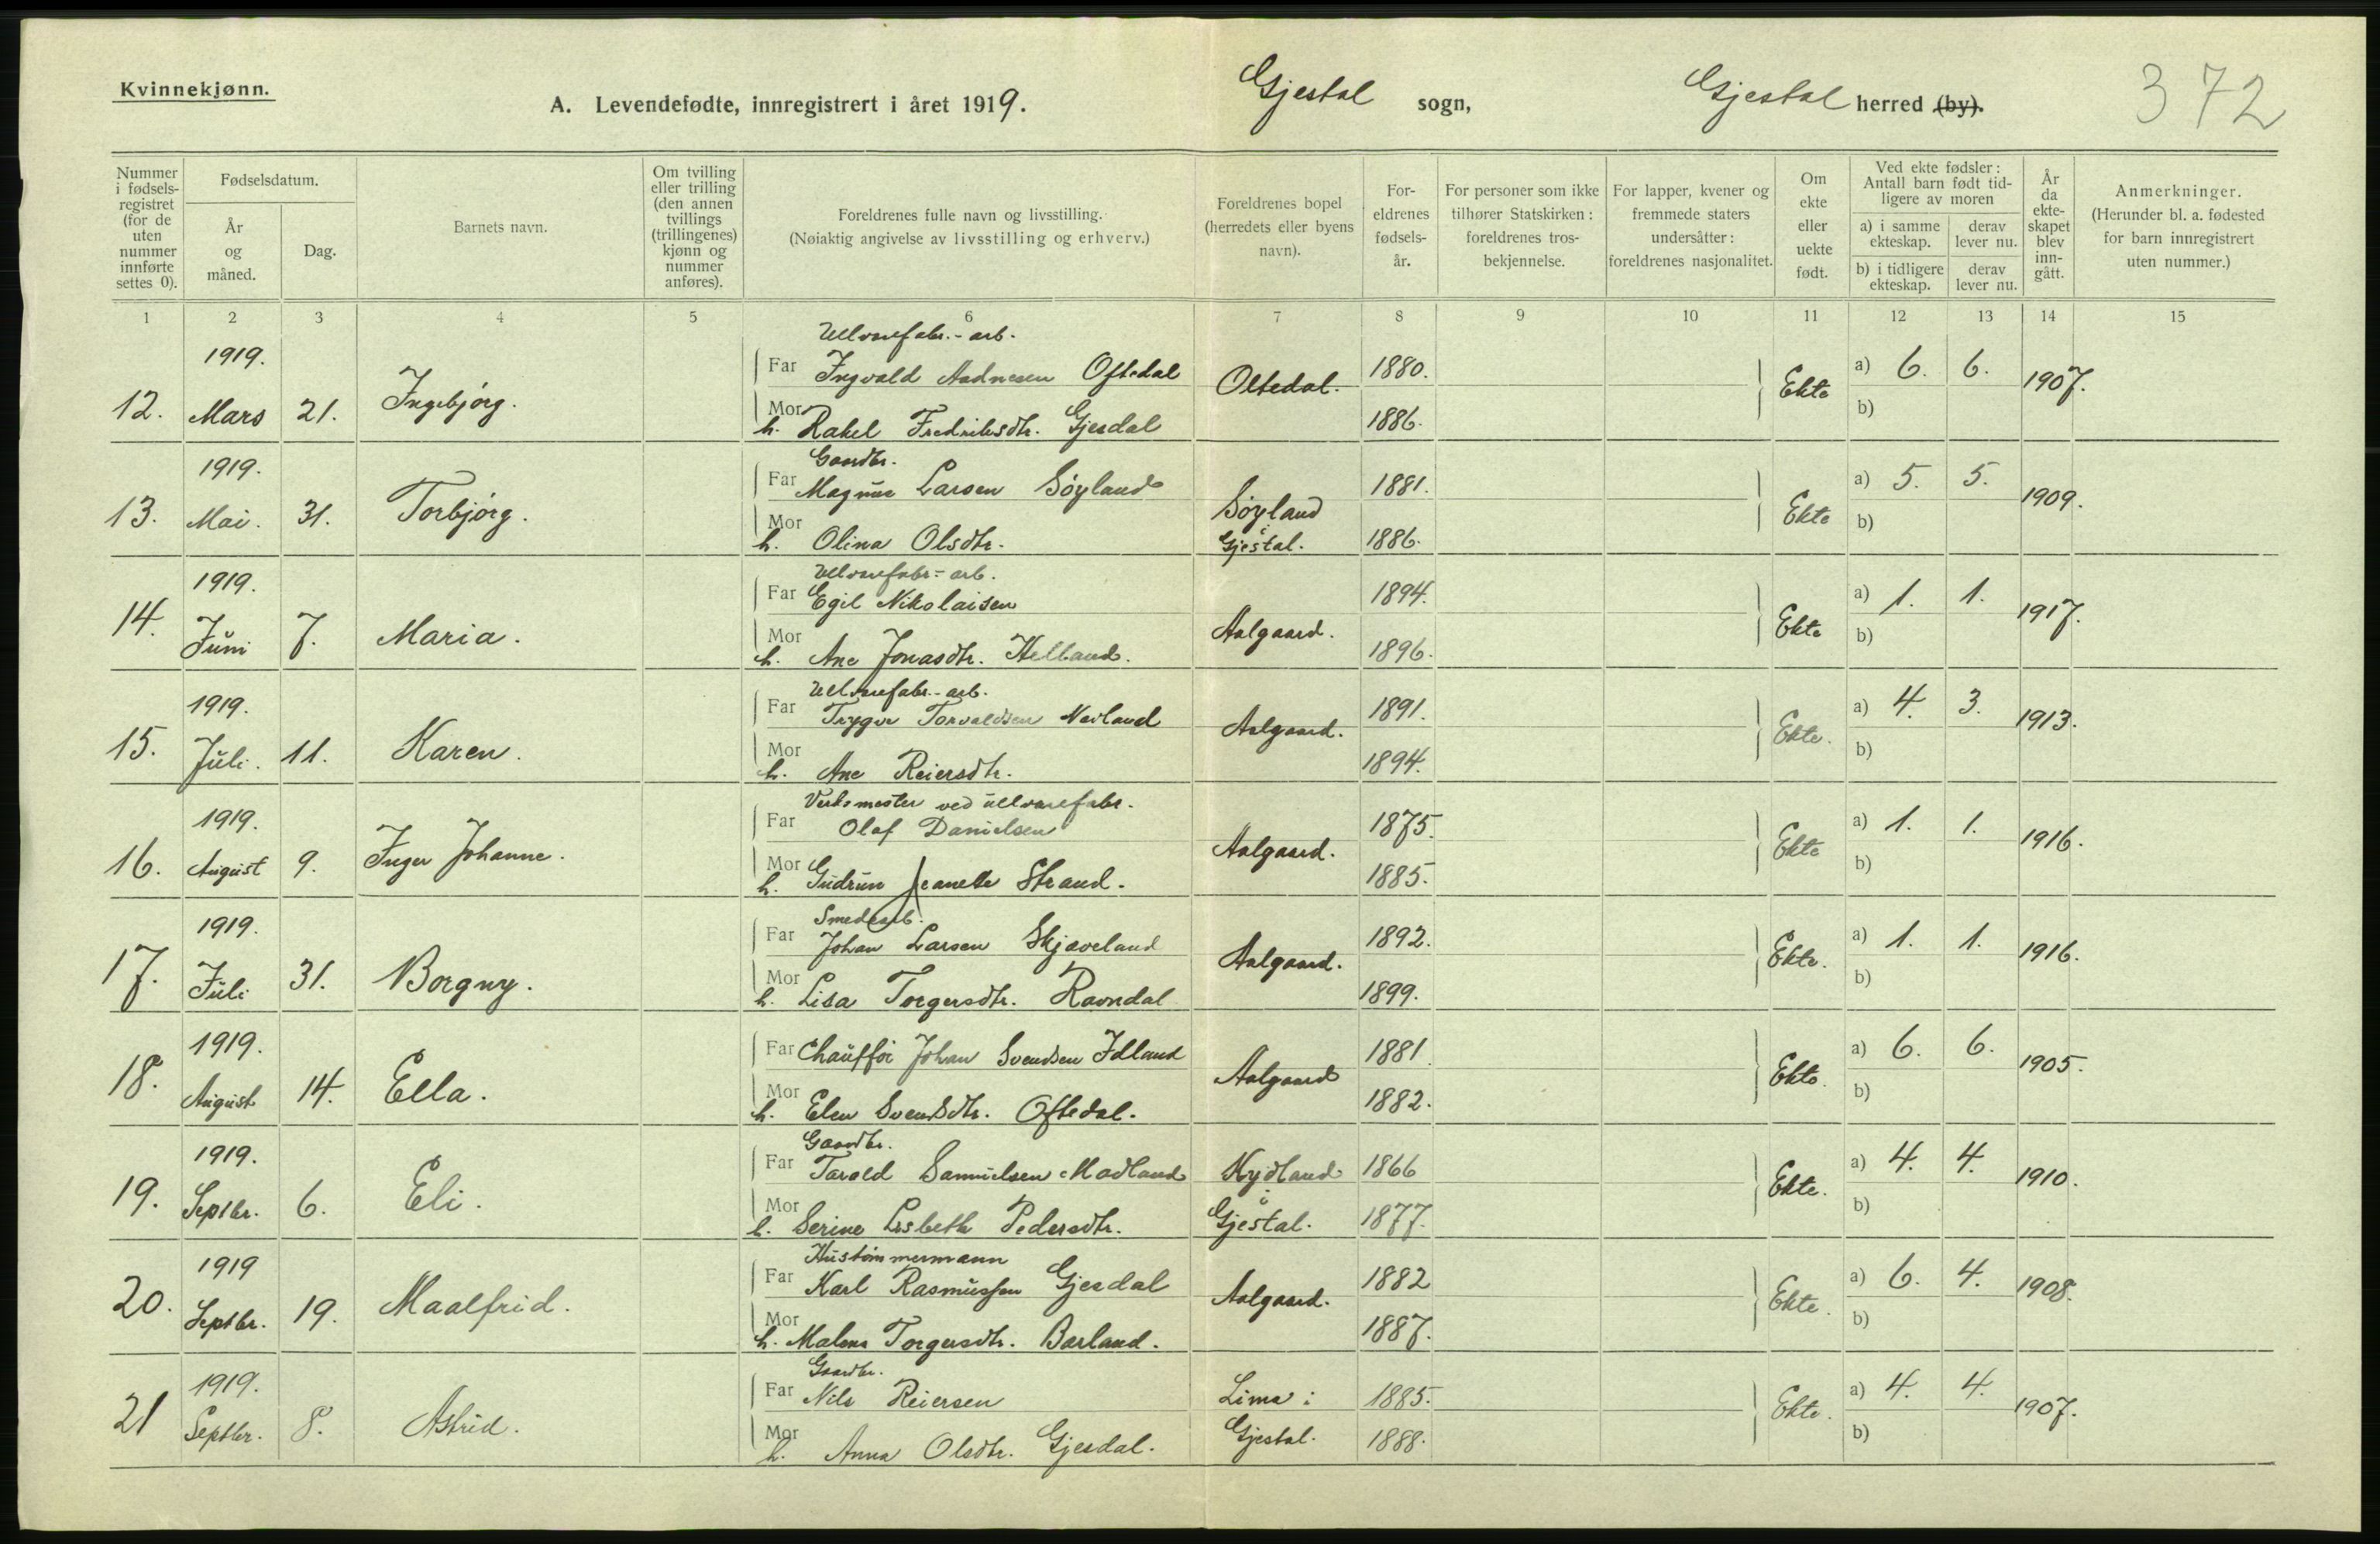 Kvinnekjønn.
A. Levendefødte, innregistrert i året 1919.
Gjestal sogn,
Gjestal herred (by).
372
Nummer i fødsels-registret (for de uten nummer innførte settes 0).
Fødselsdatum.
År og måned.
Dag.
Barnets navn.
Om tvilling eller trilling (den annen tvillings (trillingenes) kjønn og nummer anføres).
Foreldrenes fulle navn og livsstilling.
(Nøiaktig angivelse av livsstilling og erhverv.)
Foreldrenes bopel (herredets eller byens navn).
For-eldrenes fødsels-år.
For personer som ikke tilhører Statskirken: foreldrenes tros-bekjennelse.
For lapper, kvener og fremmede staters undersåtter: foreldrenes nasjonalitet.
Om ekte eller uekte født.
Ved ekte fødsler: Antall barn født tid-ligere av moren
a) i samme ekteskap.
derav lever nu.
b) i tidligere ekteskap.
derav lever nu.
År da ekte-skapet blev inn-gått.
Anmerkninger.
(Herunder bl. a. fødested for barn innregistrert uten nummer.)
1 2 3 4 5 6 7 8 9 10 11 12 13 14 15
Ullvarefabr.-arb.
12. 1919. Mars 21. Ingebjørg. Far Ingvald Aadnesen Oftedal Oltedal. 1880. Ekte a) 6. 6. 1907.
Mor h. Rakel Fredriksdtr. Gjesdal 1886. b)
Gaardbr.
13. 1919. Mai. 31. Torbjørg. Far Magnus Larsen Søyland Søyland 1881. Ekte a) 5. 5. 1909.
Mor h. Olina Olsdtr. i Gjestal. 1886. b)
Ullvarefabr.-arb.
14. 1919. Juni 7. Maria. Far Egil Nikolaisen Aalgaard. 1894. Ekte a) 1. 1. 1917.
Mor h. Ane Jonasdtr. Helland. 1896. b)
Ullvarefabr.-arb.
15. 1919. Juli. 11. Karen. Far Trygve Torvaldsen Nevland Aalgaard. 1891. Ekte. a) 4. 3. 1913.
Mor h. Ane Reiersdtr. 1894. b)
Verksmester ved ullvarefabr.
16. 1919. August 9. Inger Johanne. Far Olaf Danielsen Aalgaard. 1875. Ekte a) 1. 1. 1916.
Mor h. Gudrun Jeanette Strand. 1885. b)
Smedearb.
17. 1919. Juli 31. Borgny. Far Johan Larsen Skjæveland Aalgaard. 1892. Ekte. a) 1. 1. 1916.
Mor h. Lisa Torgersdtr. Ravndal 1899. b)
18. 1919. August 14. Ella. Far Chauffør Johan Svendsen Idland Aalgaard 1881. Ekte. a) 6. 6. 1905.
Mor h. Elen Svensdtr. Oftedal. 1882. b)
Gaardbr.
19. 1919. Septbr. 6. Eli. Far Tarald Samuelsen Madland Kydland 1866 Ekte. a) 4. 4. 1910.
Mor h. Serine Lisbeth Pedersdtr. i Gjestal. 1877. b)
Hustømmermann
20. 1919 Septbr. 19. Maalfrid. Far Karl Rasmussen Gjesdal Aalgaard. 1882 Ekte. a) 6. 4. 1908.
Mor h. Malena Torgersdtr. Børland. 1887. b)
Gaardbr.
21 1919. Septbr. 8. Astrid. Far Nils Reiersen Lima i 1885. Ekte. a) 4. 4. 1907.
Mor h. Anna Olsdtr. Gjesdal. Gjestal. 1888. b)